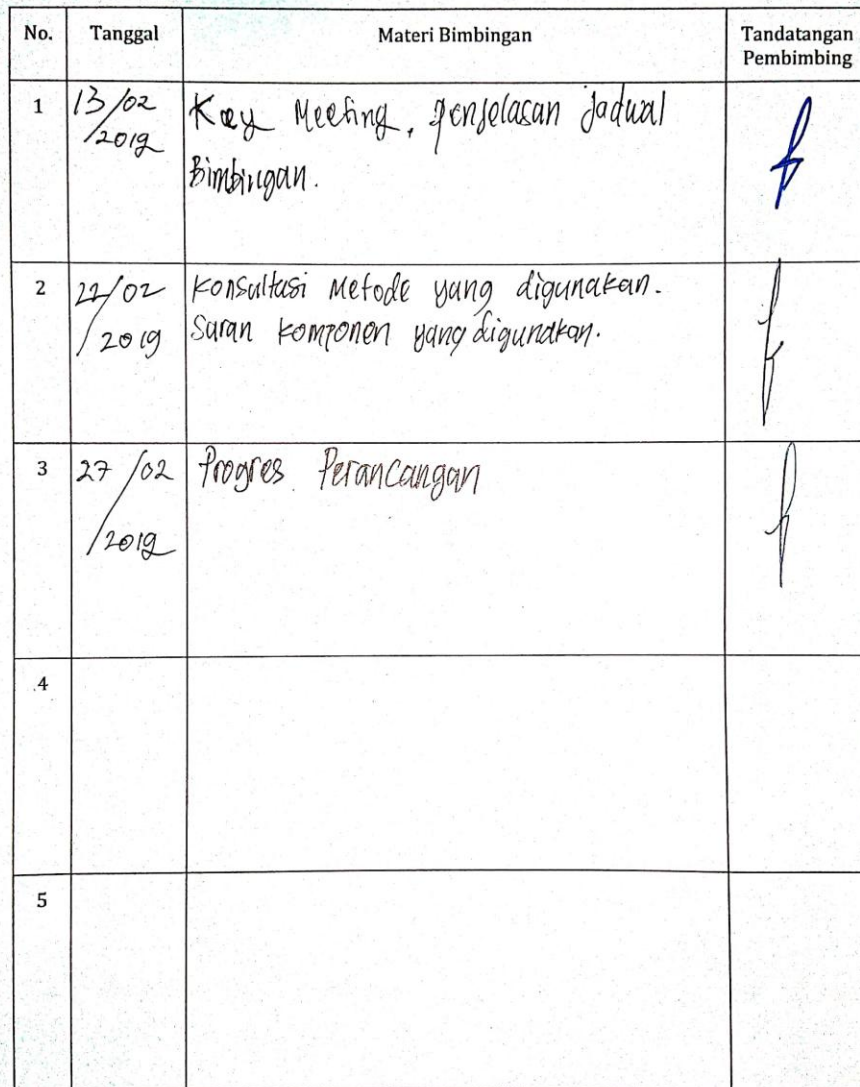 No. Tanggal Materi Bimbingan Tandatangan
Pembimbing
1 13/02 Key Meeting, penjelasan jadwal
/2019 Bimbingan.
2 22/02 Konsultasi Metode yang digunakan.
/2019 Saran komponen yang digunakan.
3 27/02 Progres Perancangan
/2019
4
5